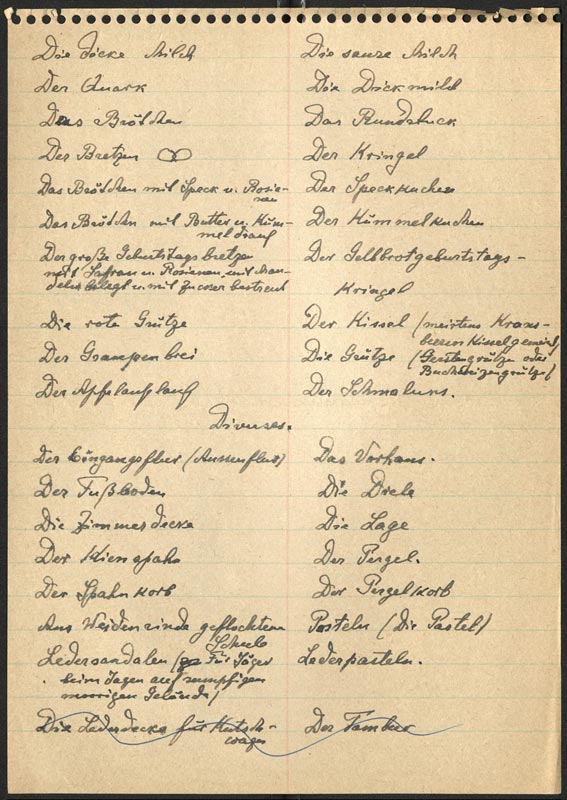 Die dicke Milch Die saure Milch
Der Quark Die Dickmilch
Das Brötchen Das Rundstuck
Der Bretzen Der Kringel
Das Brötchen mit Speck u. Rosie-
nen Der Speckkuchen
Das Brötchen mit Butter u. Küm-
mel drauf Der Kümmelkuchen
Der große Geburtstagsbretzen Der Gelbbrotgeburtstags-
mit Safran u. Rosienen, mit Man-
deln belegt u. mit Zucker bestreut Kringel
Die rote Grütze Der Kissel (meistens Krans-
beeren Kissel gemeint)
Der Graupenbrei Die Grütze (Gerstengrütze oder
Buchweizengrütze)
Der Apfelauflauf Der Schmaluns.
Diverses.
Der Eingangsflur (Aussenflur) Das Vorhaus.
Der Fußboden Die Diele
Die Zimmerdecke Die Lage
Der Kienspahn Der Pergel.
Der Spahnkorb Der Pergelkorb
Aus Weidenrinde geflochtene
Schuhe Pasteln (Die Pastel)
Ledersandalen (Für Jäger Lederpasteln.
beim Jagen auf sumpfigem
moorigen Gelände)
Die Lederdecke für Kutsch-
wagen Der Tambur